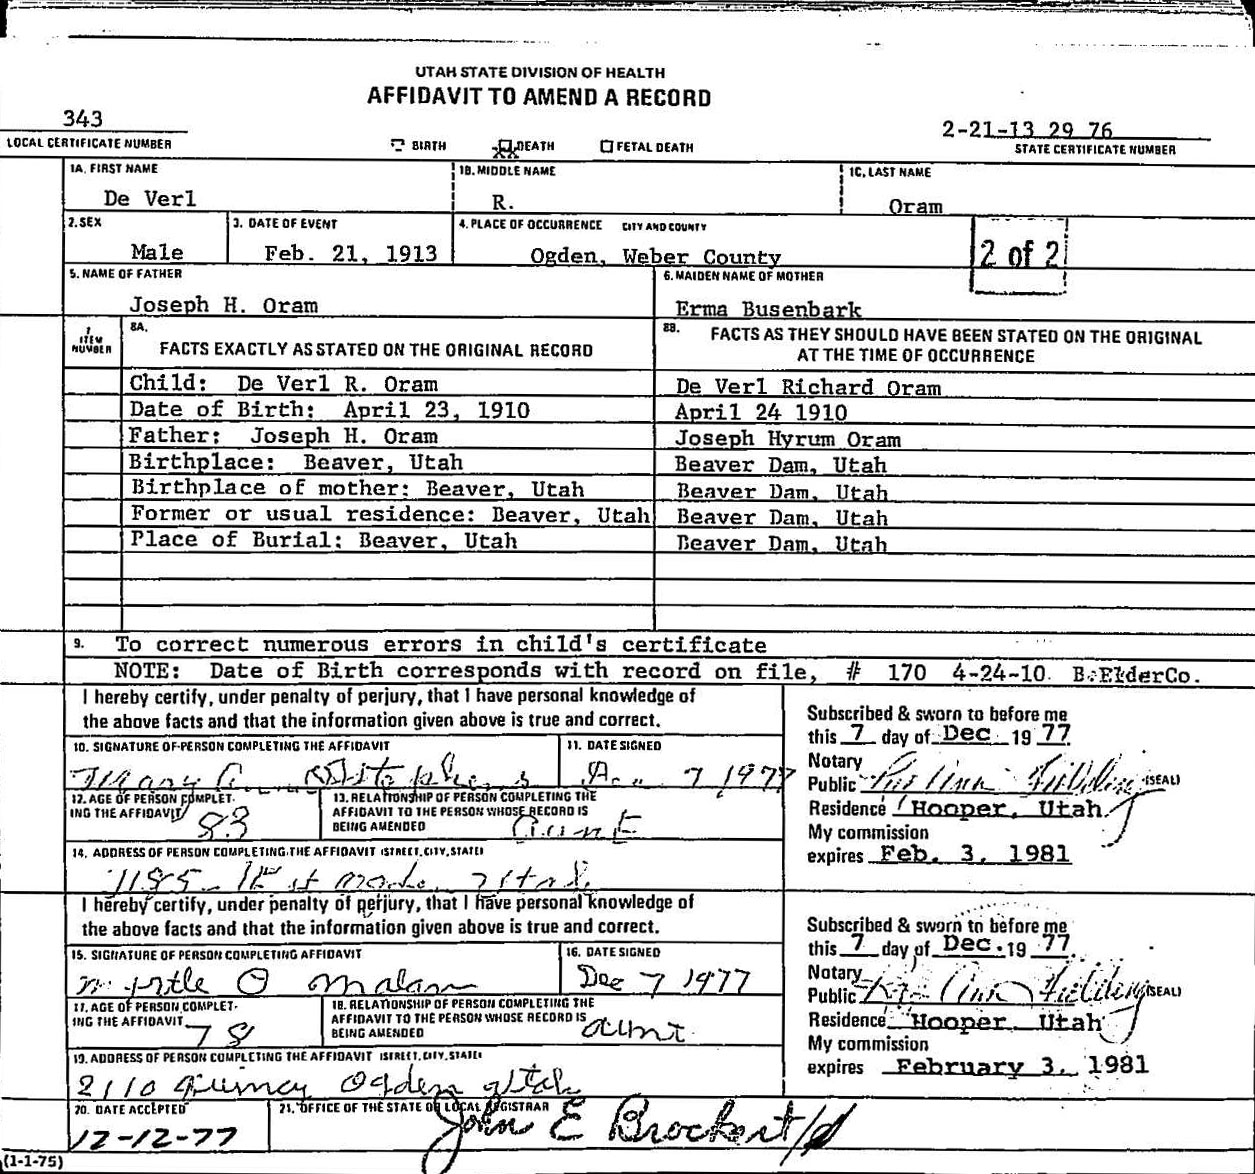 UTAH STATE DIVISION OF HEALTH
AFFIDAVIT TO AMEND A RECORD
343
LOCAL CERTIFICATE NUMBER
BIRTH DEATH FETAL DEATH
2-21-13 29 76
STATE CERTIFICATE NUMBER
1A. FIRST NAME 1B. MIDDLE NAME 1C. LAST NAME
De Verl R. Oram
2. SEX 3. DATE OF EVENT 4. PLACE OF OCCURRENCE CITY AND COUNTY
Male Feb. 21, 1913 Ogden, Weber County
2 of 2
5. NAME OF FATHER 6. MAIDEN NAME OF MOTHER
Joseph H. Oram Erma Busenbark
7 ITEM NUMBER
8A. FACTS EXACTLY AS STATED ON THE ORIGINAL RECORD
8B. FACTS AS THEY SHOULD HAVE BEEN STATED ON THE ORIGINAL
AT THE TIME OF OCCURRENCE
Child: De Verl R. Oram De Verl Richard Oram
Date of Birth: April 23, 1910 April 24 1910
Father: Joseph H. Oram Joseph Hyrum Oram
Birthplace: Beaver, Utah Beaver Dam, Utah
Birthplace of mother: Beaver, Utah Beaver Dam, Utah
Former or usual residence: Beaver, Utah Beaver Dam, Utah
Place of Burial: Beaver, Utah Beaver Dam, Utah
9. To correct numerous errors in child's certificate
NOTE: Date of Birth corresponds with record on file, # 170 4-24-10 B.ElderCo.
I hereby certify, under penalty of perjury, that I have personal knowledge of
the above facts and that the information given above is true and correct.
10. SIGNATURE OF PERSON COMPLETING THE AFFIDAVIT 11. DATE SIGNED
Mary 7 1977
12. AGE OF PERSON COMPLET-
ING THE AFFIDAVIT 83
13. RELATIONSHIP OF PERSON COMPLETING THE
AFFIDAVIT TO THE PERSON WHOSE RECORD IS
BEING AMENDED aunt
14. ADDRESS OF PERSON COMPLETING THE AFFIDAVIT (STREET, CITY, STATE)
Utah
Subscribed & sworn to before me
this 7 day of Dec 19 77
Notary
Public Ann Fielding (SEAL)
Residence Hooper, Utah
My commission
expires Feb. 3, 1981
I hereby certify, under penalty of perjury, that I have personal knowledge of
the above facts and that the information given above is true and correct.
15. SIGNATURE OF PERSON COMPLETING AFFIDAVIT 16. DATE SIGNED
Myrtle O Malan Dec 7 1977
17. AGE OF PERSON COMPLET-
ING THE AFFIDAVIT 78
18. RELATIONSHIP OF PERSON COMPLETING THE
AFFIDAVIT TO THE PERSON WHOSE RECORD IS
BEING AMENDED aunt
19. ADDRESS OF PERSON COMPLETING THE AFFIDAVIT (STREET, CITY, STATE)
2110 Quincy Ogden Utah
Subscribed & sworn to before me
this 7 day of Dec. 19 77
Notary
Public Ann Fielding (SEAL)
Residence Hooper, Utah
My commission
expires February 3, 1981
20. DATE ACCEPTED 21. OFFICE OF THE STATE OR LOCAL REGISTRAR
12-12-77 John E Brockert
(1-1-75)